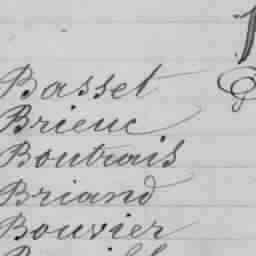 Basset
Brieuc
Boutrais
Briand
Bouvier